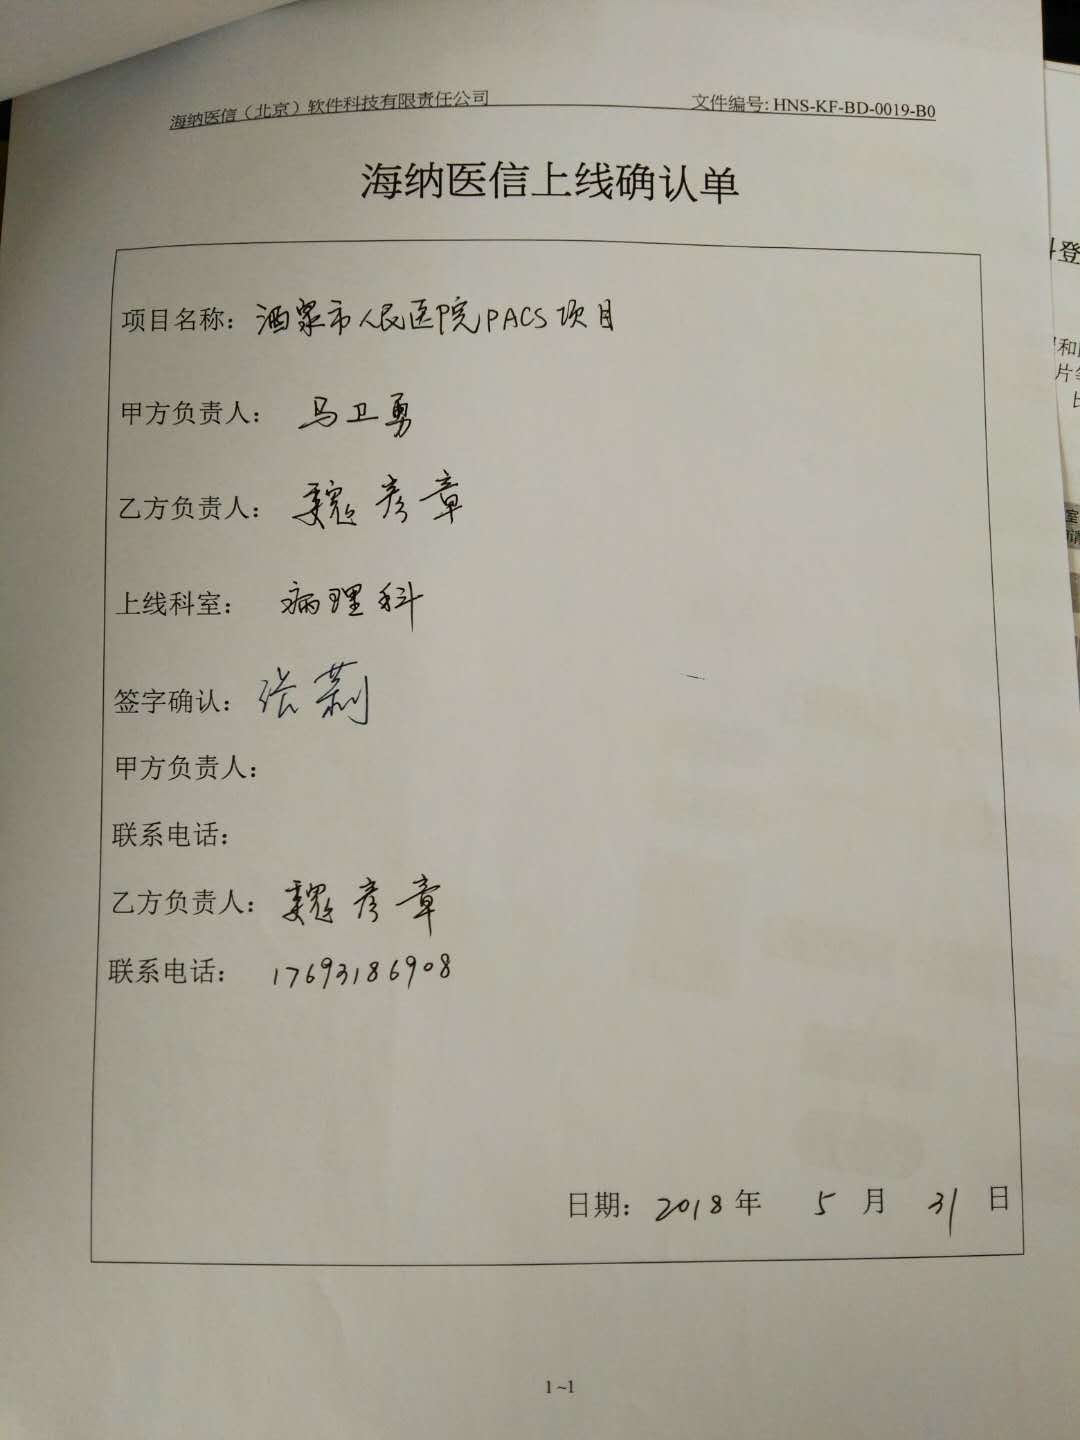 海纳医信（北京）软件科技有限责任公司 文件编号: HNS-KF-BD-0019-B0
海纳医信上线确认单
项目名称：酒泉市人民医院PACS项目
甲方负责人：马卫勇
乙方负责人：魏彦章
上线科室：病理科
签字确认：张莉
甲方负责人：
联系电话：
乙方负责人：魏彦章
联系电话：17693186908
日期：2018年 5 月 31 日
1~1
登
和
片
室